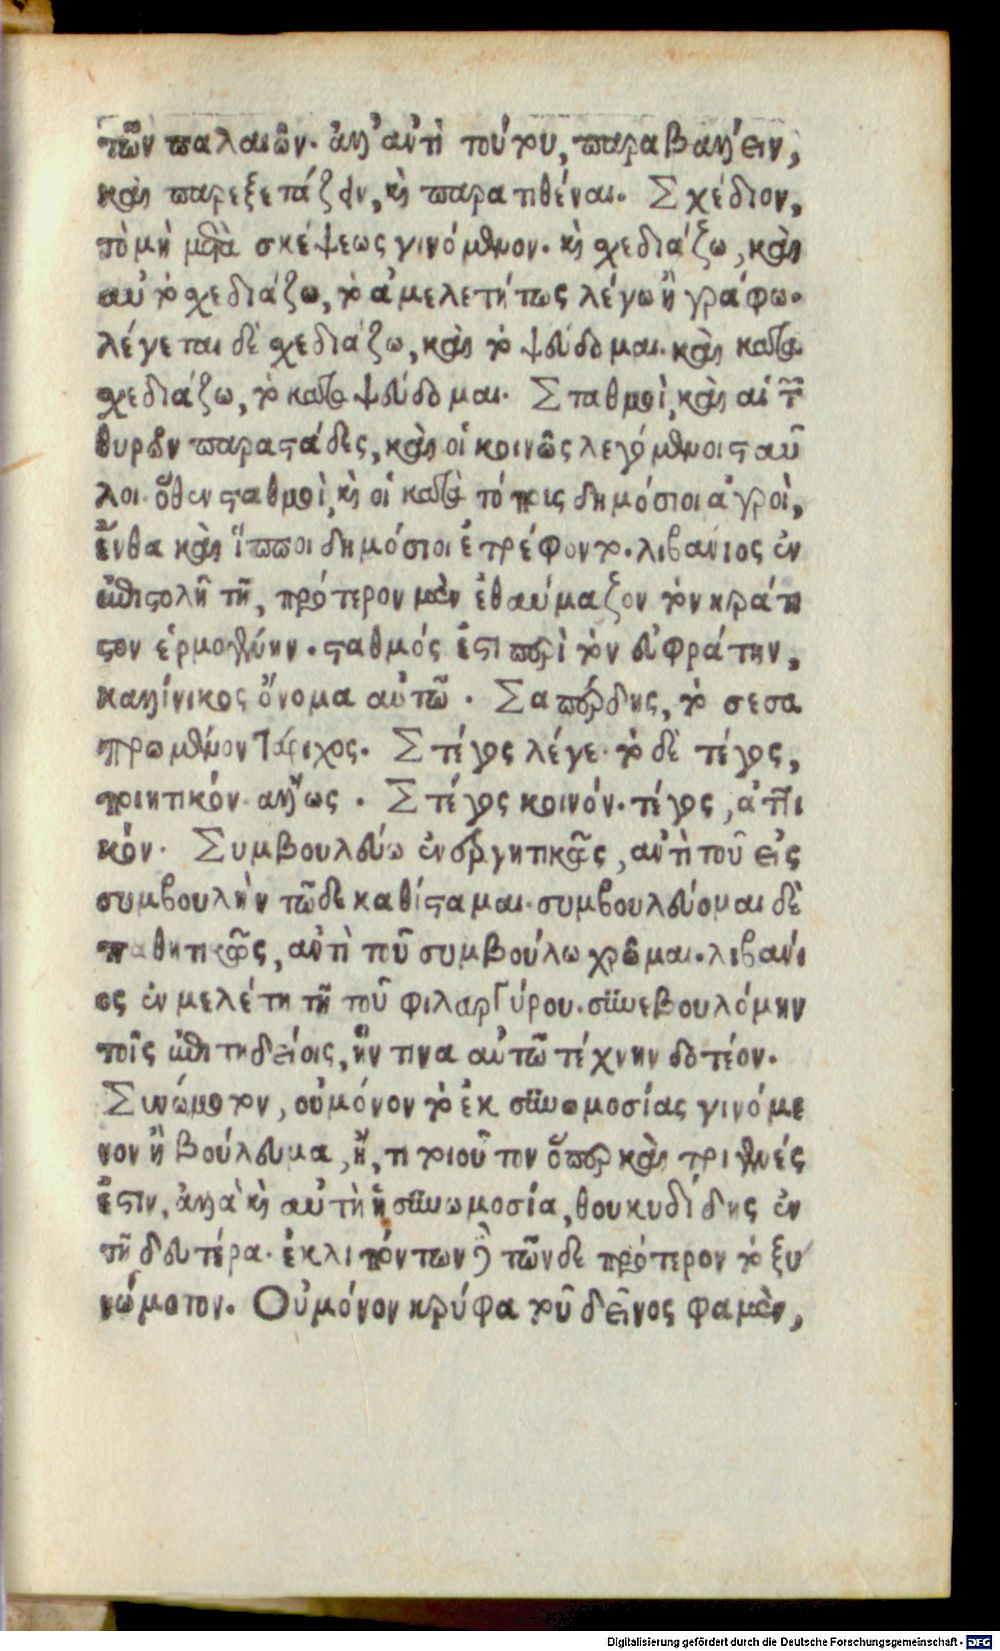 τῶν παλαιῶν. ἀλλ' ἀντὶ τούτου, παραβαλλειν,
καὶ παρεξετάζειν, καὶ παρατιθέναι. Σχέδιον,
τὸ μὴ μετὰ σκέψεως γινόμενον. καὶ σχεδιάζω, καὶ
αὐτοσχεδιάζω, τὸ ἀμελετήτως λέγω ἢ γράφω.
λέγεται δὲ σχεδιάζω, καὶ τὸ ψεύδομαι. καὶ κατα
σχεδιάζω, τὸ καταψεύδομαι. Σταθμοὶ, καὶ αἱ τῶν
θυρῶν παραστάδες, καὶ οἱ κοινῶς λεγόμενοι σταῦ
λοι. ὅθεν σταθμοὶ, καὶ οἱ κατὰ τόπους δημόσιοι ἀγροὶ,
ἔνθα καὶ ἵπποι δημόσιοι ἐτρέφοντο. λιβάνιος ἐν
ἐπιστολῆ τῆ, πρότερον μὲν ἐθαύμαζον τὸν κράτι
στον ἑρμογένην. σταθμός ἐστι περὶ τὸν εὐφράτην,
καλλίνικος ὄνομα αὐτῶ. Σαπέρδης, τὸ σεσα
πρωμένον τάριχος. Στέγος λέγε. τὸ δὲ τέγος,
ποιητικόν. ἄλλως. Στέγος κοινόν. τέγος, ἀττι
κόν. Συμβουλεύω ἐνεργητικῶς, ἀντὶ τοῦ εἰς
συμβουλὴν τῶδε καθίσταμαι. συμβουλεύομαι δὲ
παθητικῶς, ἀντὶ τοῦ συμβούλω χρῶμαι. λιβάνι
ος ἐν μελέτη τῆ τοῦ φιλαργύρου. συνεβουλόμην
τοῖς ἐπιτηδείοις, ἥν τινα αὐτῶ τέχνην δοτέον.
Συνώμοτον, οὐ μόνον τὸ ἐκ συνωμοσίας γινόμε
νον ἢ βούλευμα, ἤ, τι τοιοῦτον ὅπερ καὶ τριγενές
ἐστιν, ἀλλὰ καὶ αὐτὴ ἡ συνωμοσία, θουκυδίδης ἐν
τῆ δευτέρα. ἐκλιπόντων δὲ τῶνδε πρότερον τὸ ξυ
νώμοτον. Οὐ μόνον κρύφα τοῦ δεῖνος φαμὲν,
Digitalisierung gefördert durch die Deutsche Forschungsgemeinschaft - DFG